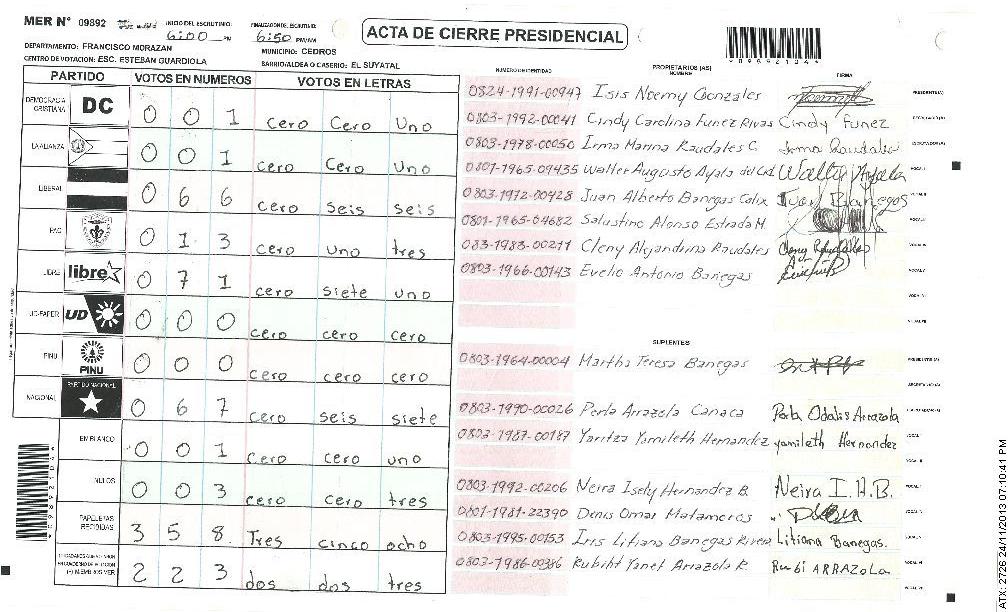 MER Nº 09892
INICIO DEL ESCRUTINIO: 6:00 PM
FINALIZACION DEL ESCRUTINIO: 6:50 PM/AM
ACTA DE CIERRE PRESIDENCIAL
DEPARTAMENTO: FRANCISCO MORAZAN
MUNICIPIO: CEDROS
CENTRO DE VOTACION: ESC. ESTEBAN GUARDIOLA
BARRIO/ALDEA O CASERIO: EL SUYATAL
PARTIDO VOTOS EN NUMEROS VOTOS EN LETRAS
DEMOCRACIA CRISTIANA DC 0 0 1 cero cero uno
LA ALIANZA 0 0 1 cero cero uno
LIBERAL 0 6 6 cero seis seis
PAC 0 1 3 cero uno tres
LIBRE libre 0 7 1 cero siete uno
UD-FAPER UD 0 0 0 cero cero cero
PINU PINU 0 0 0 cero cero cero
NACIONAL PARTIDO NACIONAL 0 6 7 cero seis siete
EN BLANCO 0 0 1 cero cero uno
NULOS 0 0 3 cero cero tres
PAPELETAS RECIBIDAS 3 5 8 Tres cinco ocho
2 2 3 dos dos tres
NUMERO DE IDENTIDAD PROPIETARIOS (AS) NOMBRE FIRMA
0824-1991-00947 Isis Noemy Gonzales PRESIDENTE(A)
0803-1992-00041 Cindy Carolina Funez Rivas Cindy Funez SECRETARIO(A)
0803-1978-00050 Irma Marina Raudales C Irma Raudales ESCRUTADOR(A)
0801-1965-09435 Walter Augusto Ayala del Cid Walter Ayala VOCAL I
0803-1972-00428 Juan Alberto Banegas Calix Juan Banegas VOCAL II
0801-1965-04682 Salustino Alonso Estrada M.
083-1983-00211 Cleny Alejandrina Raudales Cleny Raudales
0803-1966-00143 Evelio Antonio Banegas
SUPLENTES
0803-1964-00004 Martha Teresa Banegas PRESIDENTE(A)
SECRETARIO(A)
0803-1990-00026 Perla Arrazola Canaca Perla Odalis Arrazola ESCRUTADOR(A)
0803-1987-00187 Yaritza Yamileth Hernandez yamileth Hernandez
0803-1992-00206 Neira Isely Hernandez B. Neira I.H.B.
0801-1981-22390 Denis Omar Matamoros
0803-1995-00153 Iris Litiana Banegas Rivera Litiana Banegas.
0803-1986-00386 Rubiht Yanet Arrazola R. Rubi ARRAZOLA
ATX: 2726 24/11/2013 07:10:41 PM